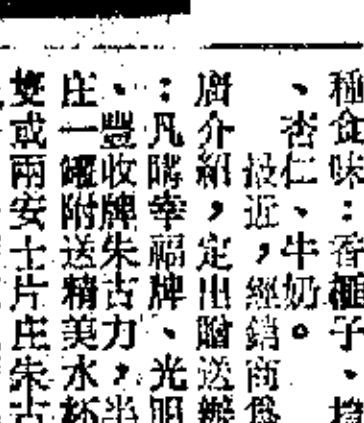 種食味：香橙子、
、杏仁、牛奶。
最近，經銷商爲
廣介紹，定出贈送辦
：凡購幸福牌、光明
、豐收牌朱古力，半
庄一罐附送精美水杯
雙或兩安士片庄朱古